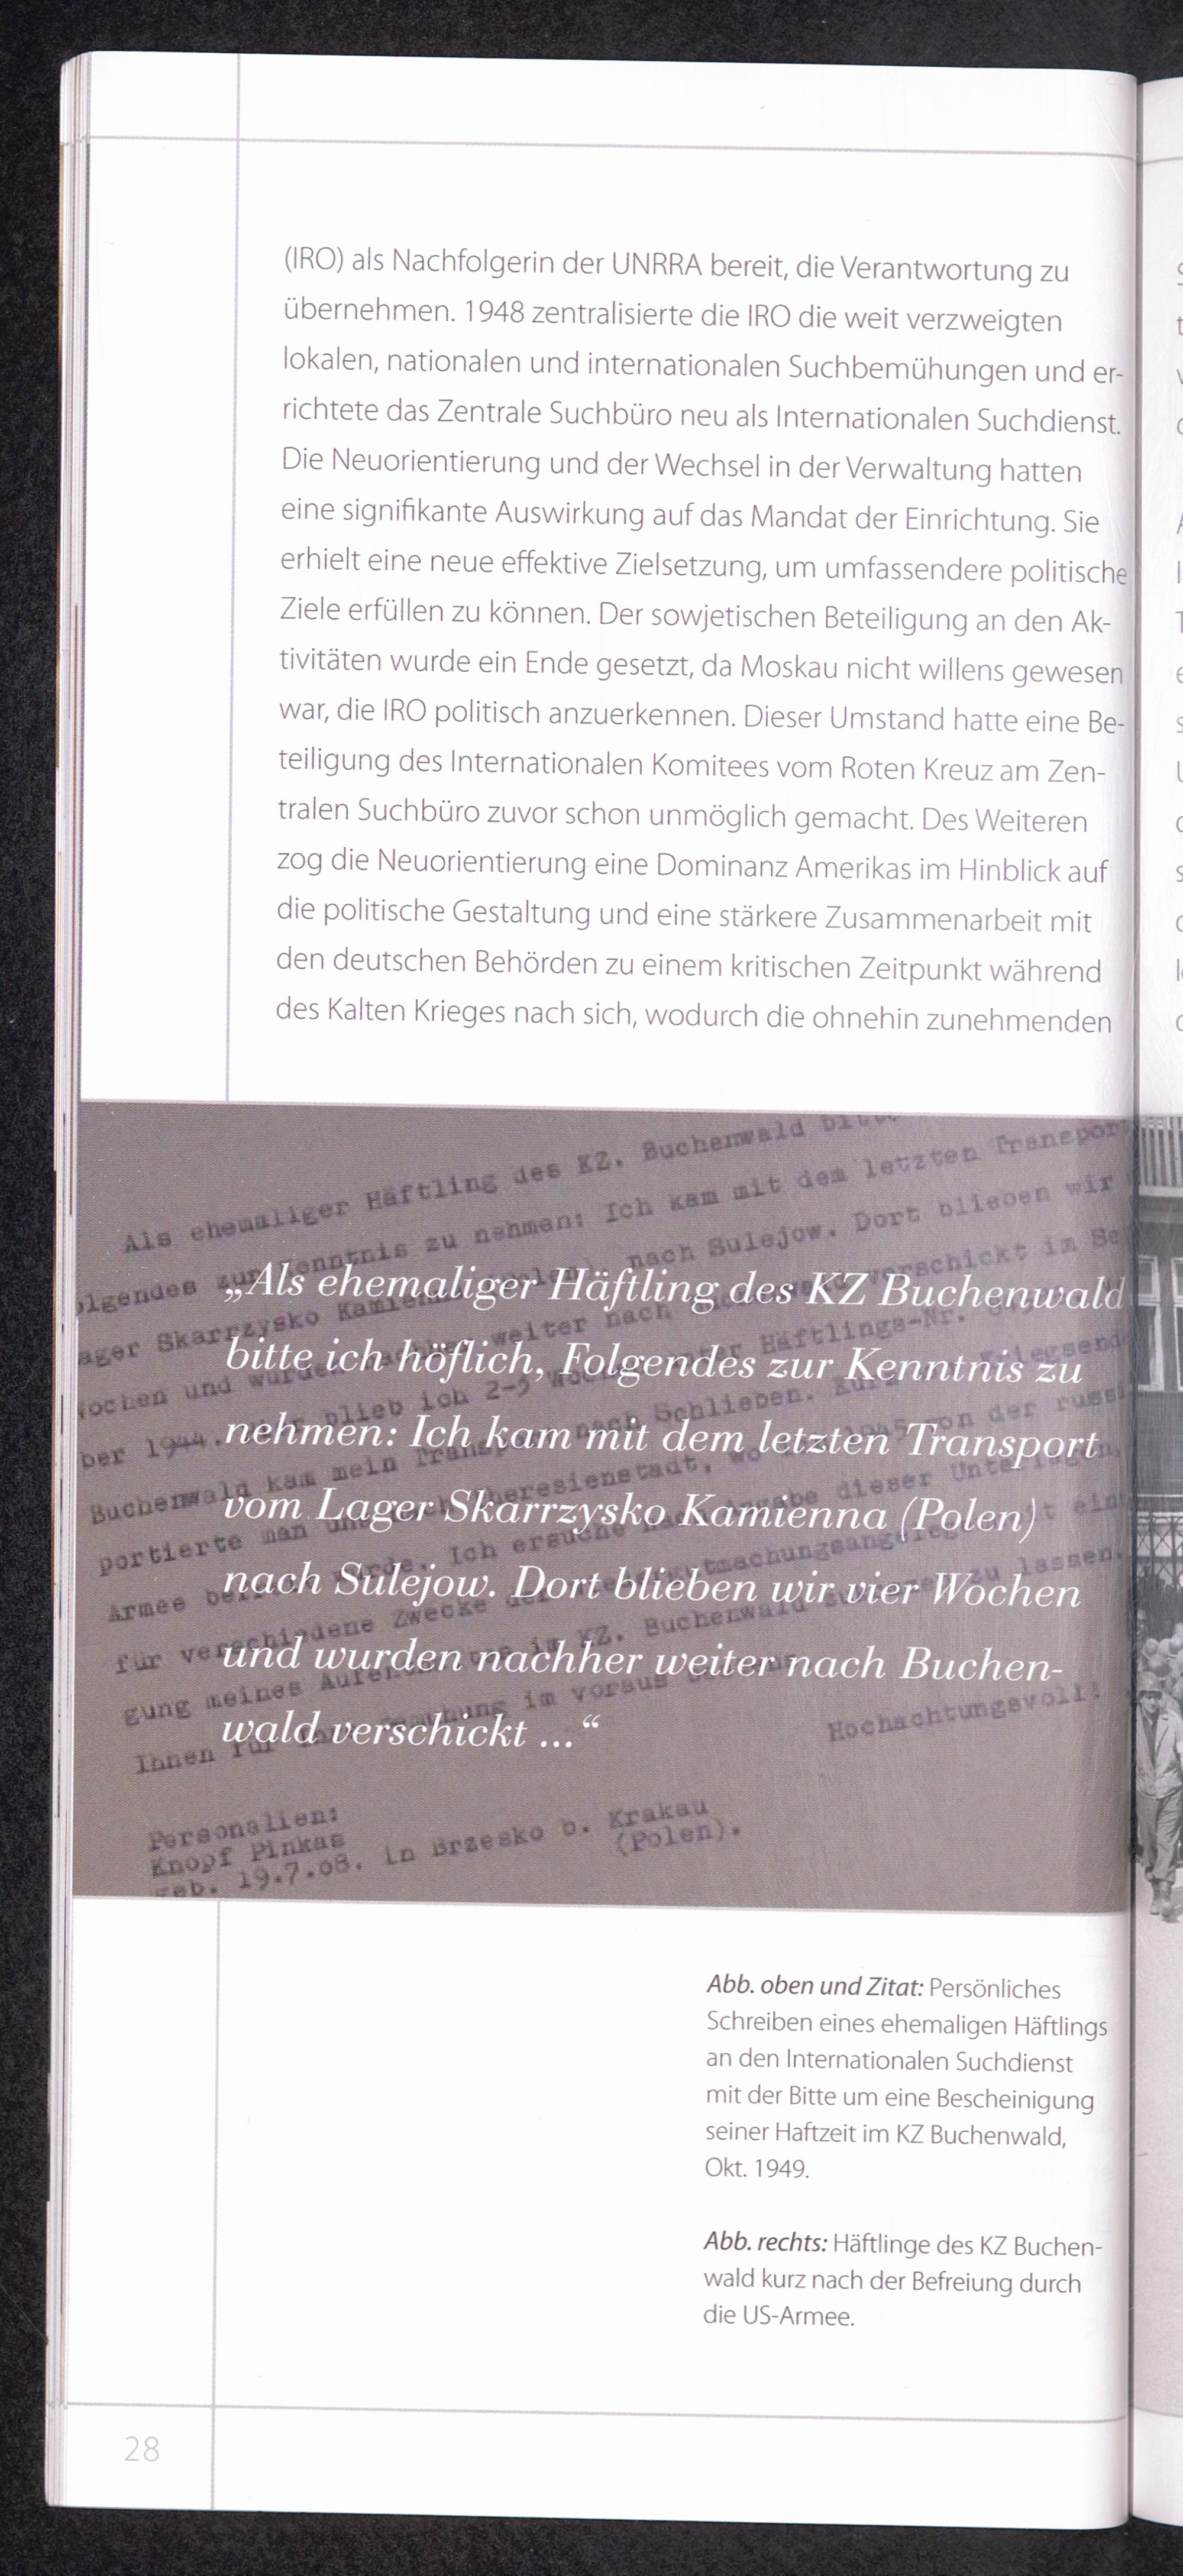 (IRO) als Nachfolgerin der UNRRA bereit, die Verantwortung zu
übernehmen. 1948 zentralisierte die IRO die weit verzweigten
lokalen, nationalen und internationalen Suchbemühungen und er-
richtete das Zentrale Suchbüro neu als Internationalen Suchdienst.
Die Neuorientierung und der Wechsel in der Verwaltung hatten
eine signifikante Auswirkung auf das Mandat der Einrichtung. Sie
erhielt eine neue effektive Zielsetzung, um umfassendere politische
Ziele erfüllen zu können. Der sowjetischen Beteiligung an den Ak-
tivitäten wurde ein Ende gesetzt, da Moskau nicht willens gewesen
war, die IRO politisch anzuerkennen. Dieser Umstand hatte eine Be-
teiligung des Internationalen Komitees vom Roten Kreuz am Zen-
tralen Suchbüro zuvor schon unmöglich gemacht. Des Weiteren
zog die Neuorientierung eine Dominanz Amerikas im Hinblick auf
die politische Gestaltung und eine stärkere Zusammenarbeit mit
den deutschen Behörden zu einem kritischen Zeitpunkt während
des Kalten Krieges nach sich, wodurch die ohnehin zunehmenden
Als ehemaliger Häftling des KZ. Buchenwald
zur Kenntnis zu nehmen: Ich kam mit dem letzten Transport
Skarrzysko nach Sulejow. Dort blieben wir
„Als ehemaliger Häftling des KZ Buchenwald
bitte ich höflich, Folgendes zur Kenntnis zu
nehmen: Ich kam mit dem letzten Transport
vom Lager Skarrzysko Kamienna (Polen)
nach Sulejow. Dort blieben wir vier Wochen
und wurden nachher weiter nach Buchen-
wald verschickt ...“
Hochachtungsvoll!
Personalien:
Knopf Pinkas
geb. 19.7.08. in Brzesko b. Krakau
(Polen).
Abb. oben und Zitat: Persönliches
Schreiben eines ehemaligen Häftlings
an den Internationalen Suchdienst
mit der Bitte um eine Bescheinigung
seiner Haftzeit im KZ Buchenwald,
Okt. 1949.
Abb. rechts: Häftlinge des KZ Buchen-
wald kurz nach der Befreiung durch
die US-Armee.
28